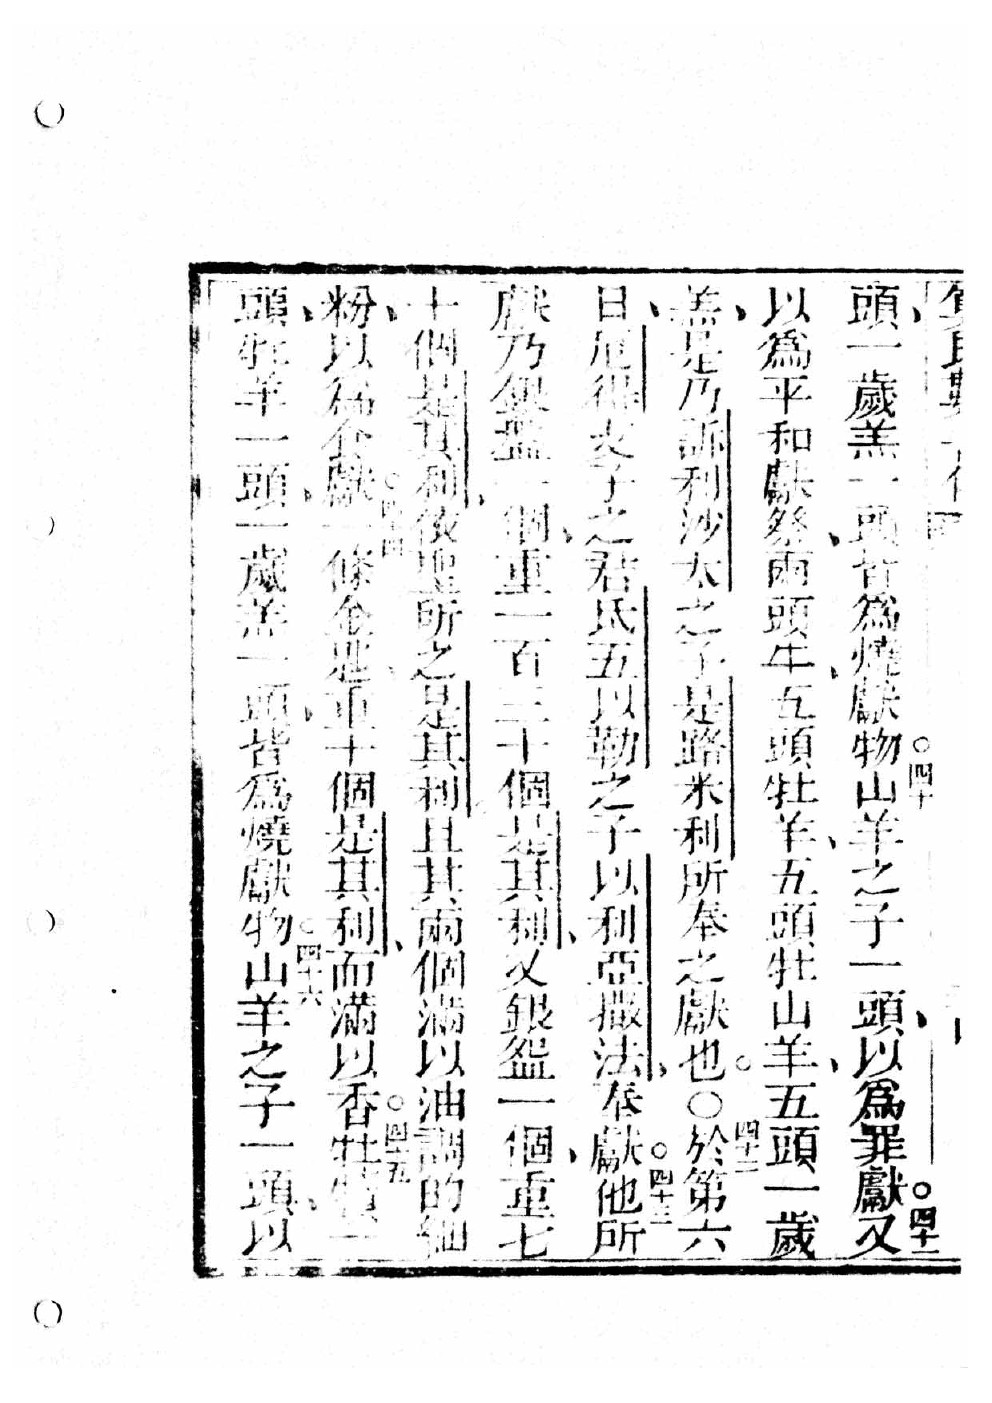 頭一歲羔一頭皆爲燒獻物○四十山羊之子一頭以爲罪獻○四十一又
以爲平和獻祭兩頭牛五頭牡羊五頭牡山羊五頭一歲
羔是乃訴利沙太之子是路米利所奉之獻也○四十二○於第六
日厄得衣子之君氏五以勒之子以利亞撒法奉獻○四十三他所
獻乃銀盤一個重一百三十個是其利又銀盌一個重七
十個是其利依聖所之是其利且其兩個滿以油調的細
粉以爲食獻○四十四一條金匙重十個是其利而滿以香○四十五牡犢一
頭牡羊一頭一歲羔一頭皆爲燒獻物○四十六山羊之子一頭以